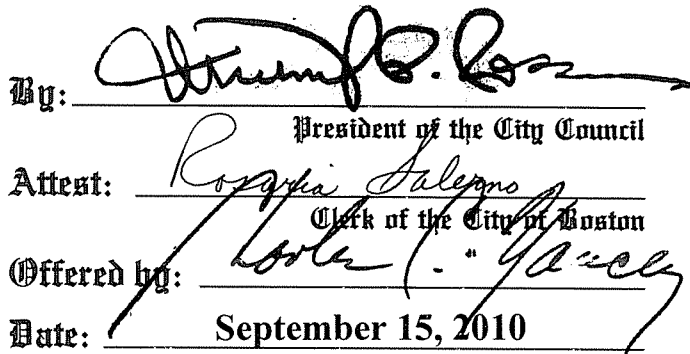 By:
President of the City Council
Attest: Rosaria Salerno
Clerk of the City of Boston
Offered by: Charles C. Yancey
Date: September 15, 2010